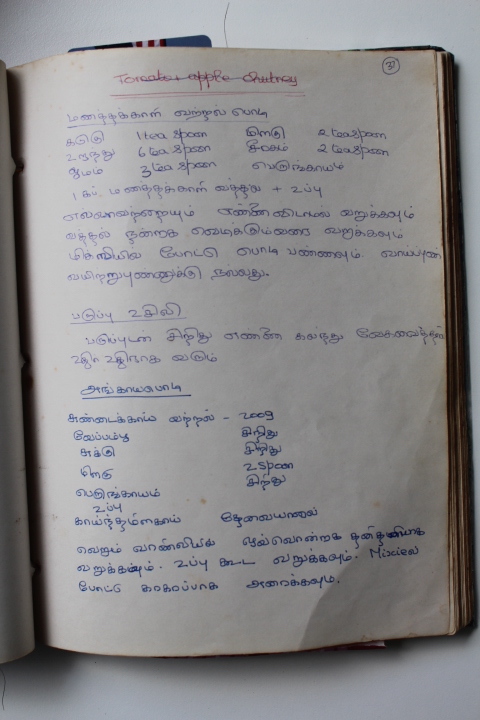 37
Tomato apple chutney
மணத்தக்காளி வற்றல் பொடி
கடுகு 1 tea spoon மிளகு 2 teaspoon
உளுந்து 6 tea spoon சீரகம் 2 teaspoon
ஓமம் 3 tea spoon பெருங்காயம்
1 கப் மணத்தக்காளி வத்தல் + உப்பு
எல்லாவற்றையும் எண்ணெய்விடாமல் வறுக்கவும்
வத்தல் நன்றாக வெடிக்கும்வரை வறுக்கவும்
மிக்ஸியில் போட்டு பொடி பண்ணவும். வாய்ப்புண்
வயிற்றுபுண்ணுக்கு நல்லது.
பருப்பு உசிலி
பருப்புடன் சிறிது எண்ணெய் கலந்து வேகவைத்தால்
உதிர் உதிராக வரும்
அங்காயபொடி
சுண்டைக்காய் வற்றல் - 200g
வேப்பம்பூ சிறிது
சுக்கு சிறிது
மிளகு 2 spoon
பெருங்காயம் சிறிது
உப்பு
காய்ந்தமிளகாய் தேவையானவை
வெறும் வாணலியில் ஒவ்வொன்றாக தனித்தனியாக
வறுக்கவும். உப்பு கூட வறுக்கவும். Mixieல்
போட்டு கரகரப்பாக அரைக்கவும்.